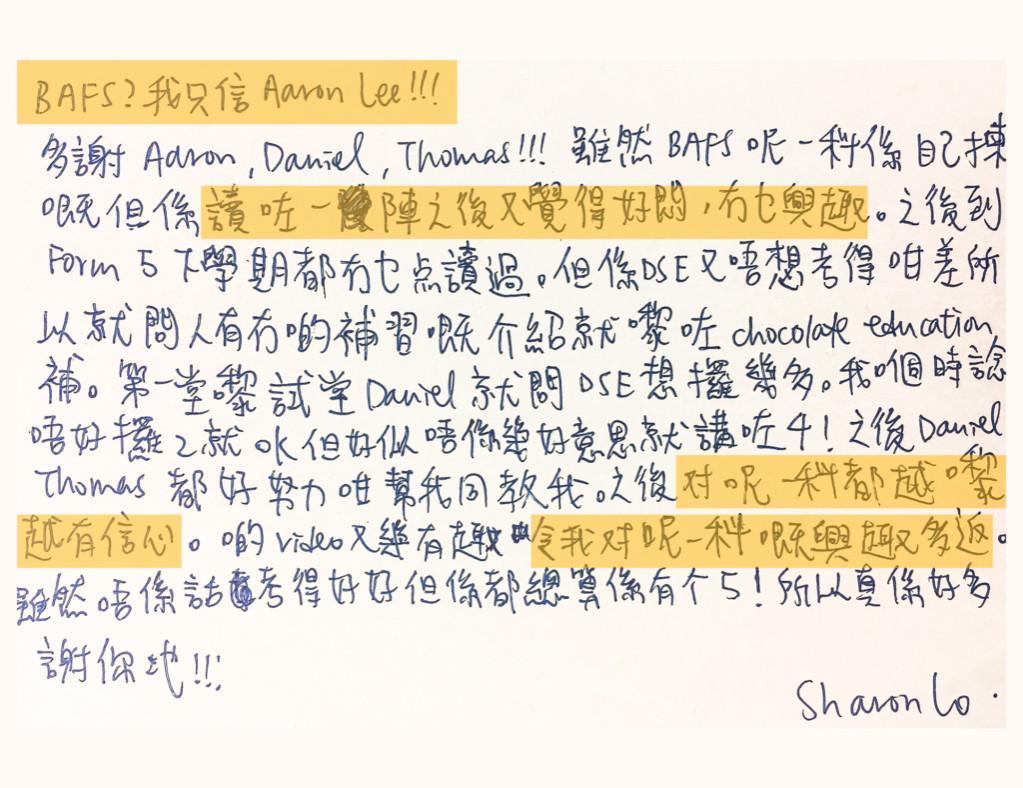 BAFS?我只信 Aaron Lee!!!
多謝 Aaron, Daniel, Thomas!!! 雖然 BAFS 呢一科係自己揀
嘅但係讀咗一陣之後又覺得好悶,冇乜興趣。之後到
Form 5 下學期都冇乜点讀過。但係DSE又唔想考得咁差所
以就問人有冇啲補習嘅介紹就嚟咗 chocolate education
補。第一堂嚟試堂 Daniel 就問 DSE 想攞幾多。我嗰時諗
唔好攞2就ok但好似唔係幾好意思就講咗4!之後Daniel
Thomas 都好努力咁幫我同教我。之後对呢一科都越嚟
越有信心。啲video又幾有趣令我对呢一科嘅興趣多返。
雖然唔係話考得好好但係都總算係有个5!所以真係好多
謝你哋!!!
Sharon Lo.